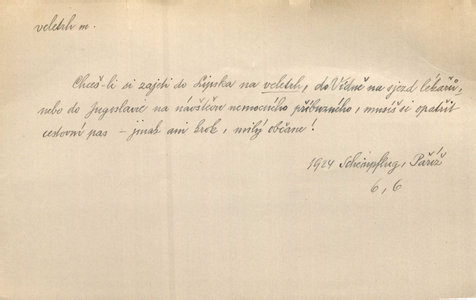 veletrh m.
Chceš-li si zajeti do Lipska na veletrh, do Vídně na sjezd lékařů,
nebo do Jugoslavie na návštěvu nemocného příbuzného, musíš si opatřit
cestovní pas – jinak ani krok, milý občane!
1924 Scheinpflug, Paříž
6, 6